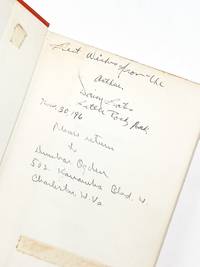 Best Wishes from the
Author,
Daisy Bates
Little Rock, Ark.
Nov. 30, '96
Please return
to
Dunbar Ogden
502 Kanawha Blvd. W.
Charleston, W. Va